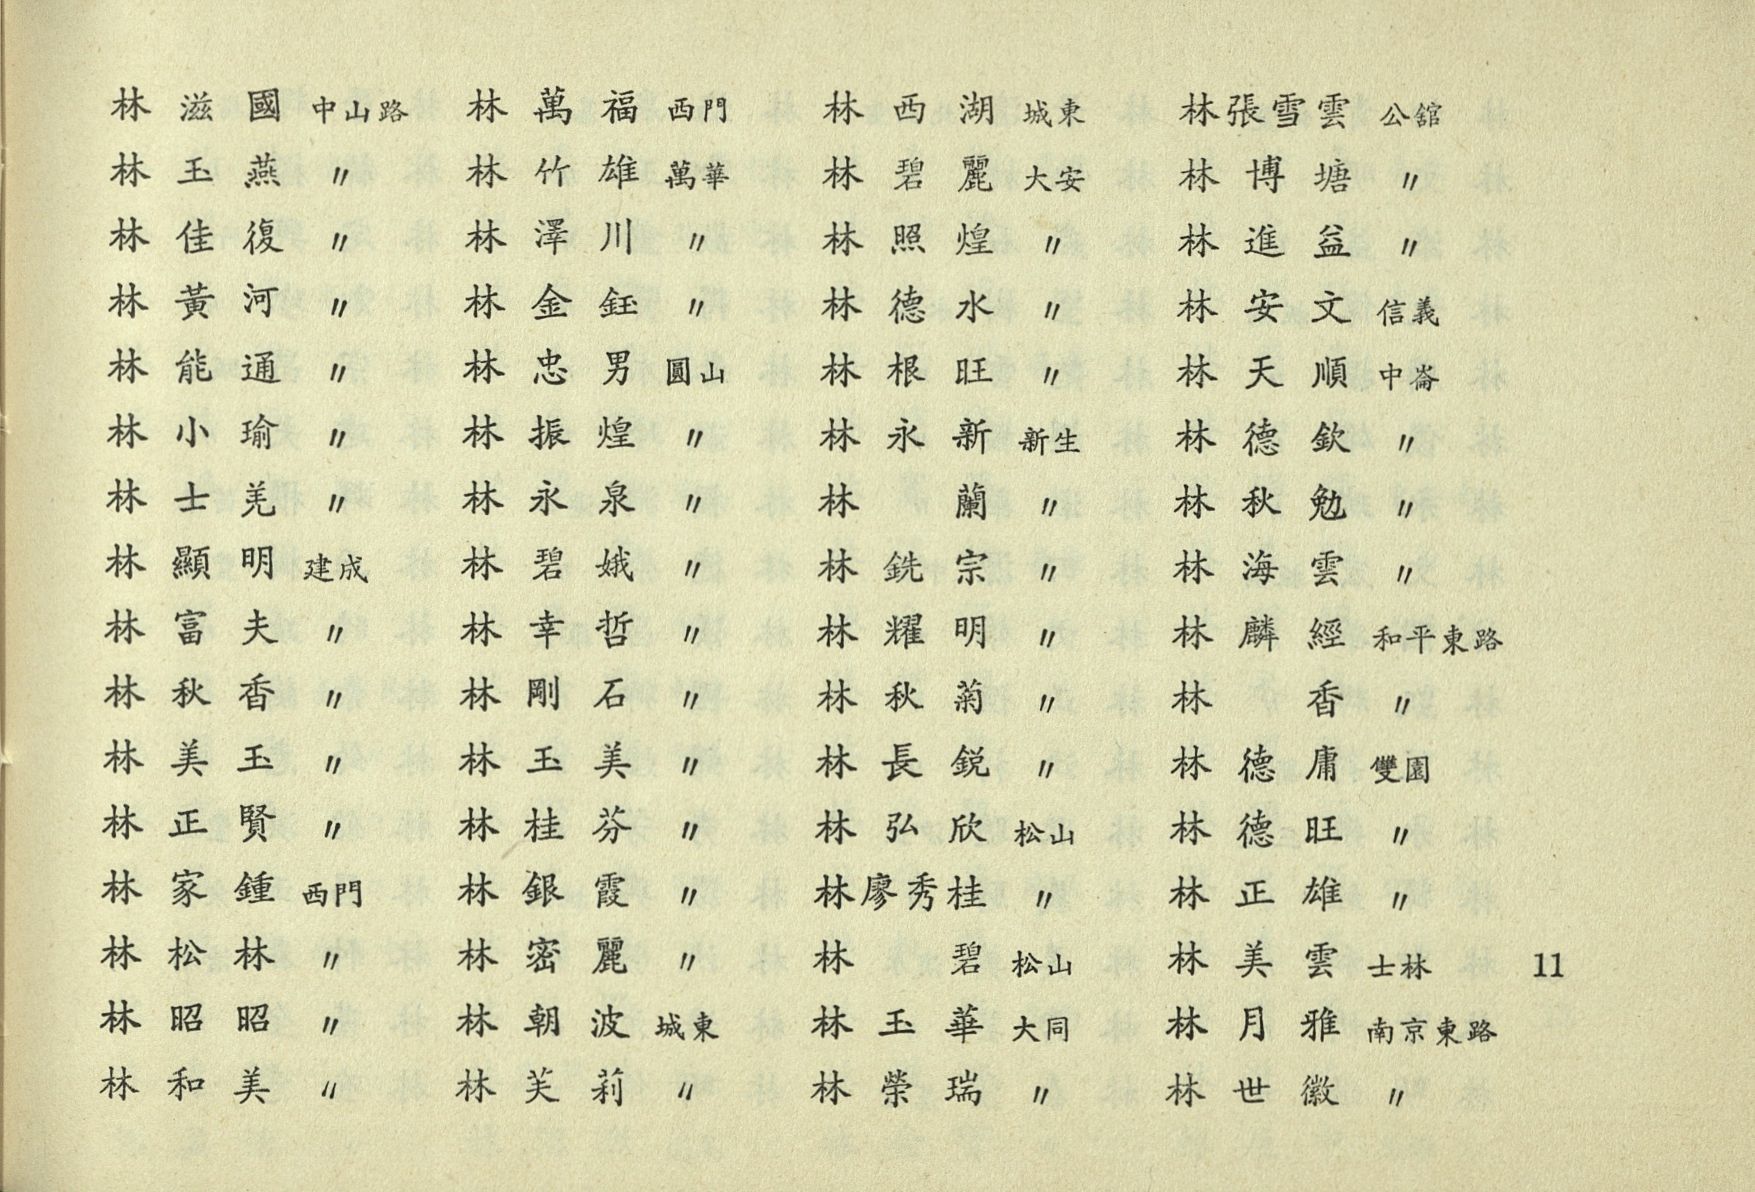 林滋國 中山路
林玉燕 〃
林佳復 〃
林黃河 〃
林能通 〃
林小瑜 〃
林士羌 〃
林顯明 建成
林富夫 〃
林秋香 〃
林美玉 〃
林正賢 〃
林家鍾 西門
林松林 〃
林昭昭 〃
林和美 〃
林萬福 西門
林竹雄 萬華
林澤川 〃
林金鈺 〃
林忠男 圓山
林振煌 〃
林永泉 〃
林碧娥 〃
林幸哲 〃
林剛石 〃
林玉美 〃
林桂芬 〃
林銀霞 〃
林密麗 〃
林朝波 城東
林芙莉 〃
林西湖 城東
林碧麗 大安
林照煌 〃
林德水 〃
林根旺 〃
林永新 新生
林 蘭 〃
林銑宗 〃
林耀明 〃
林秋菊 〃
林長銳 〃
林弘欣 松山
林廖秀桂 〃
林 碧 松山
林玉華 大同
林榮瑞 〃
林張雪雲 公館
林博塘 〃
林進益 〃
林安文 信義
林天順 中崙
林德欽 〃
林秋勉 〃
林海雲 〃
林麟經 和平東路
林 香 〃
林德庸 雙園
林德旺 〃
林正雄 〃
林美雲 士林
林月雅 南京東路
林世徽 〃
11